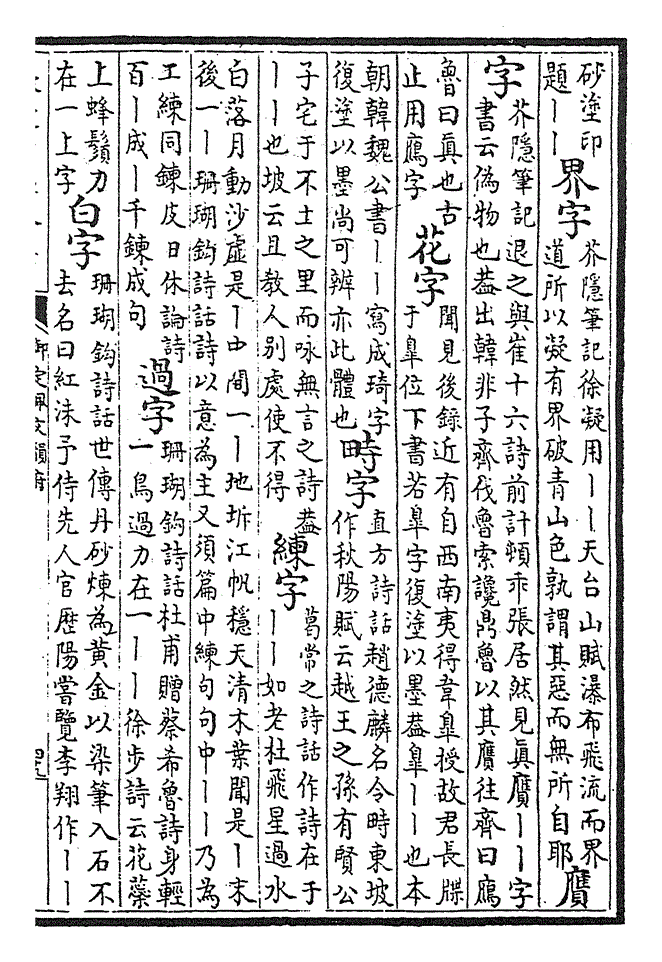 砂塗印
題丨丨
界字
芥隱筆記徐凝用丨丨天台山賦瀑布飛流而界
道所以凝有界破青山色孰謂其惡而無所自耶
贋
字
芥隱筆記退之與崔十六詩前計頓乖張居然見眞贋丨丨字
書云偽物也葢出韓非子齊伐魯索讒鼎魯以其贋往齊曰鴈
魯曰眞也古
止用鴈字
花字
聞見後錄近有自西南夷得韋臯授故君長牒
于臯位下書若臯字復塗以墨葢臯丨丨也本
朝韓魏公書丨丨寫成琦字
復塗以墨尚可辨亦此體也
時字
直方詩話趙德麟名令時東坡
作秋陽賦云越王之孫有賢公
子宅于不土之里而咏無言之詩葢
丨丨也坡云且教人别處使不得
練字
葛常之詩話作詩在于
丨丨如老杜飛星過水
白落月動沙虛是丨中間一丨地坼江帆穩天清木葉聞是丨末
後一丨珊瑚鈎詩話詩以意為主又須篇中練句句中丨丨乃為
工練同鍊皮日休論詩
百丨成丨千鍊成句
過字
珊瑚鈎詩話杜甫贈蔡希魯詩身輕
一鳥過力在一丨丨徐步詩云花蘂
上蜂鬚力
在一上字
白字
珊瑚鈎詩話世傳丹砂煉為黃金以染筆入石不
去名曰紅沫予侍先人官歷陽嘗覽李翔作丨丨
御定佩文韻府